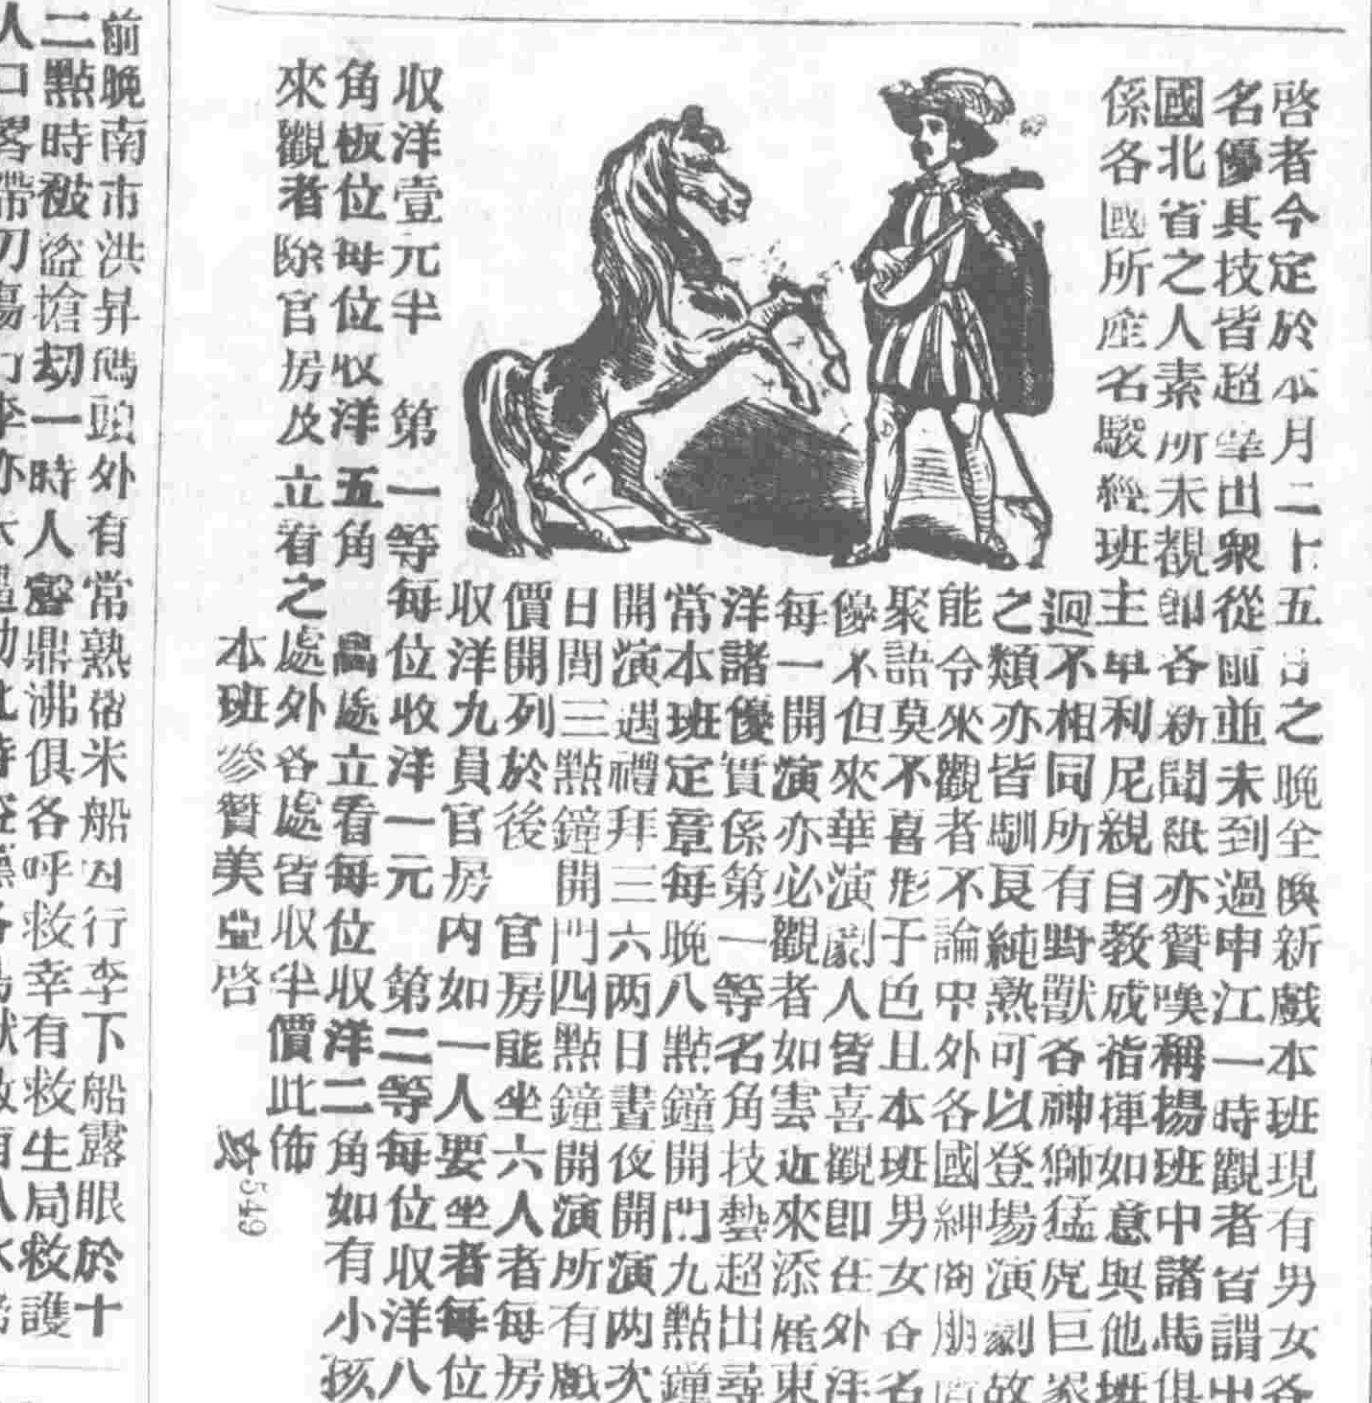 啓者今定於本月二十五日之晚全換新戲本班現有男女各
名優其技皆超羣出衆從前並未到過申江一時觀者皆謂中
國北省之人素所未覩卽各新聞紙亦贊嘆稱揚班中諸馬俱
係各國所產名駿經班主車利尼親自教成指揮如意與他班
迥不相同所有野獸各神獅猛虎巨象
之類亦皆馴良純熟可以登場演劇故
能令來觀者不論中外各國紳商朋
聚語莫不喜形于色且本班男女各名
優不但來華演劇人皆喜觀即在外洋
每一開演亦必觀者如雲近來添雇東
洋諸優實係第一等名角技藝超出尋
常本班定章每晚八點鐘開門九點鐘
開演遇禮拜三六两日晝夜開演两次
日間三點鐘開門四點鐘開演所有戲
價開列於後 官房能坐六人者每房
收洋九員官房内如一人要坐者每位
收洋壹元半 第一等每位收洋一元 第二等每位收洋八
角板位每位收洋五角 高處立看每位收洋二角如有小孩
來觀者除官房及立看之處外各處皆收半價此佈
本班參贊美亞啓
5549
前晚南市洪昇碼頭外有常熟客米船因行李下船露眼於十
二點時被盜搶刼一時人聲鼎沸俱各呼救幸有救生局救護
人口畧帶刀傷